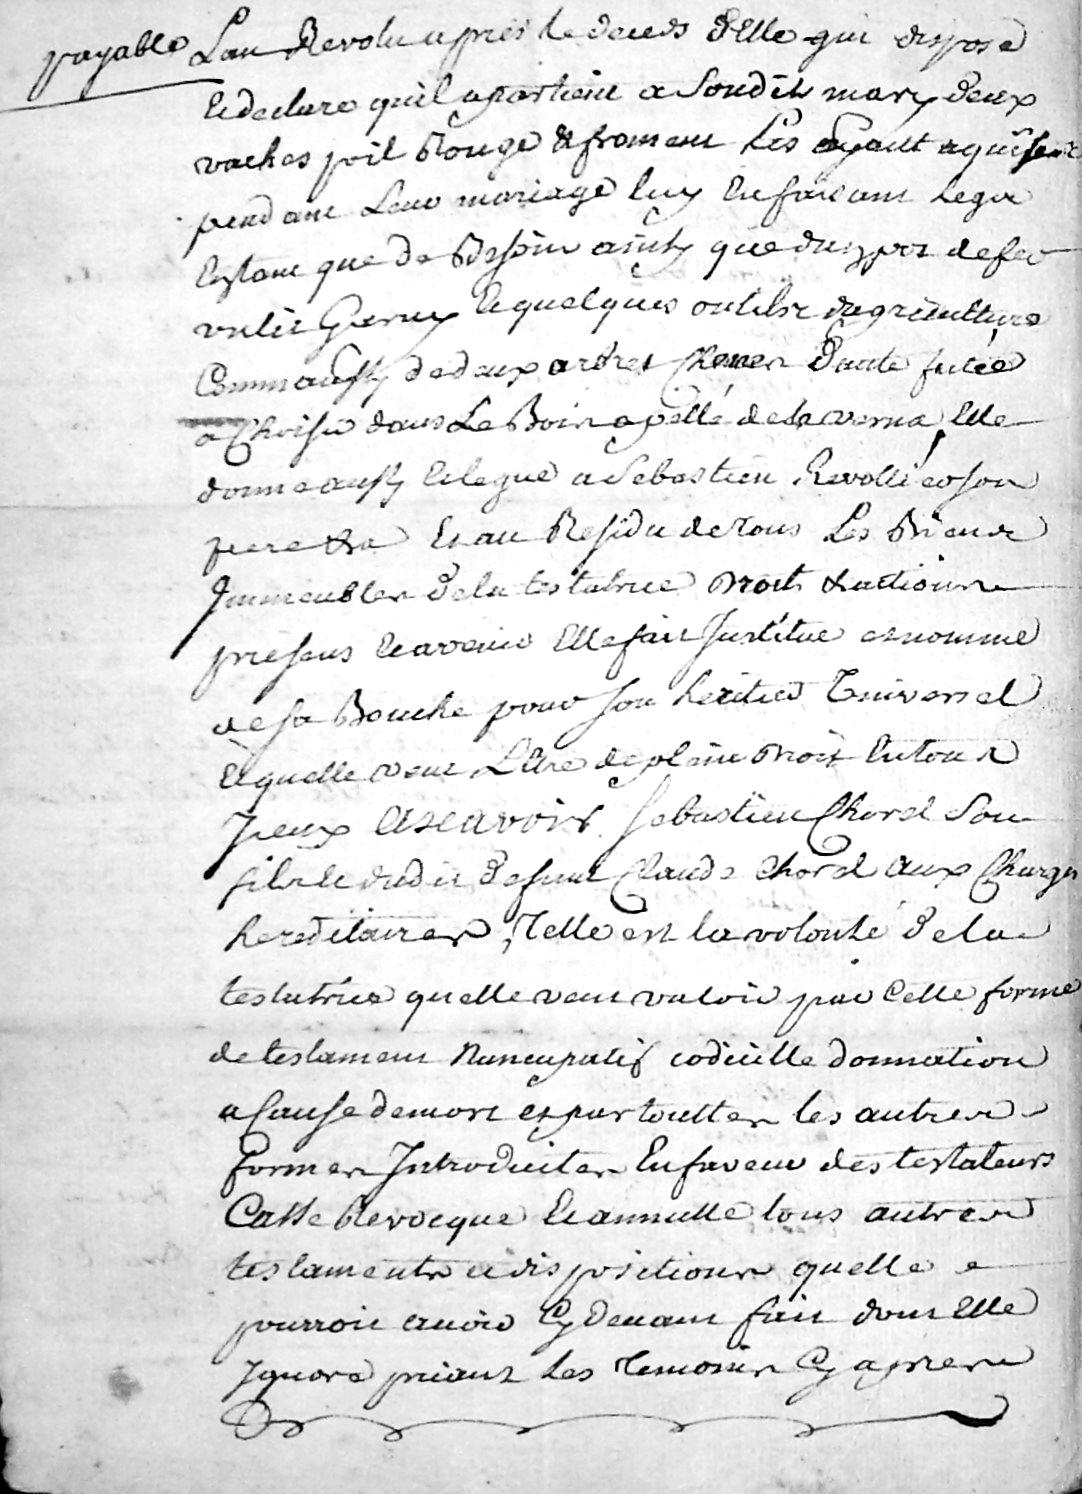 payable Lan Revolu apres le deces d'Elle qui dispose
Et declare quil apartient a Sondit mary deux
vaches poil Rouge & froment Les ayant aquise
pendant Leur mariage luy En faisant Legat
Entant que de Besoin ainsy que du pot de fer
Garny Et quelques outils dagriculture
Comm aussy de deux arbres Chene d'aute futée
a Choisir dans Le Bois apellé de la verna, Elle
donne aussy Et legue a Sebastien
Et au Residu de tous Les Biens
Immeubles de la testatrice Droits & actions
presens Et avenir Elle fait Institue et nomme
de sa Bouche pour son heritier Universel
Et quelle veut Letre de plein Droit En tous
Jeux Ascavoir Sebastien Chorel Son
fils Et dudit defunt Claude Chorel aux Charges
hereditaires, Telle est la volonté de la
testatrice quelle veut valoir par Celle forme
de testament Nuncupatif codicille donnation
a Cause de mort et par toutter les autres
formes Introduites En faveur des testateurs
Casse Revocque Et annulle tous autres
testaments et dispositions quelle
pourroit avoir Cy devant fait dont Elle
Ignore priant Les Temoins Cy apres